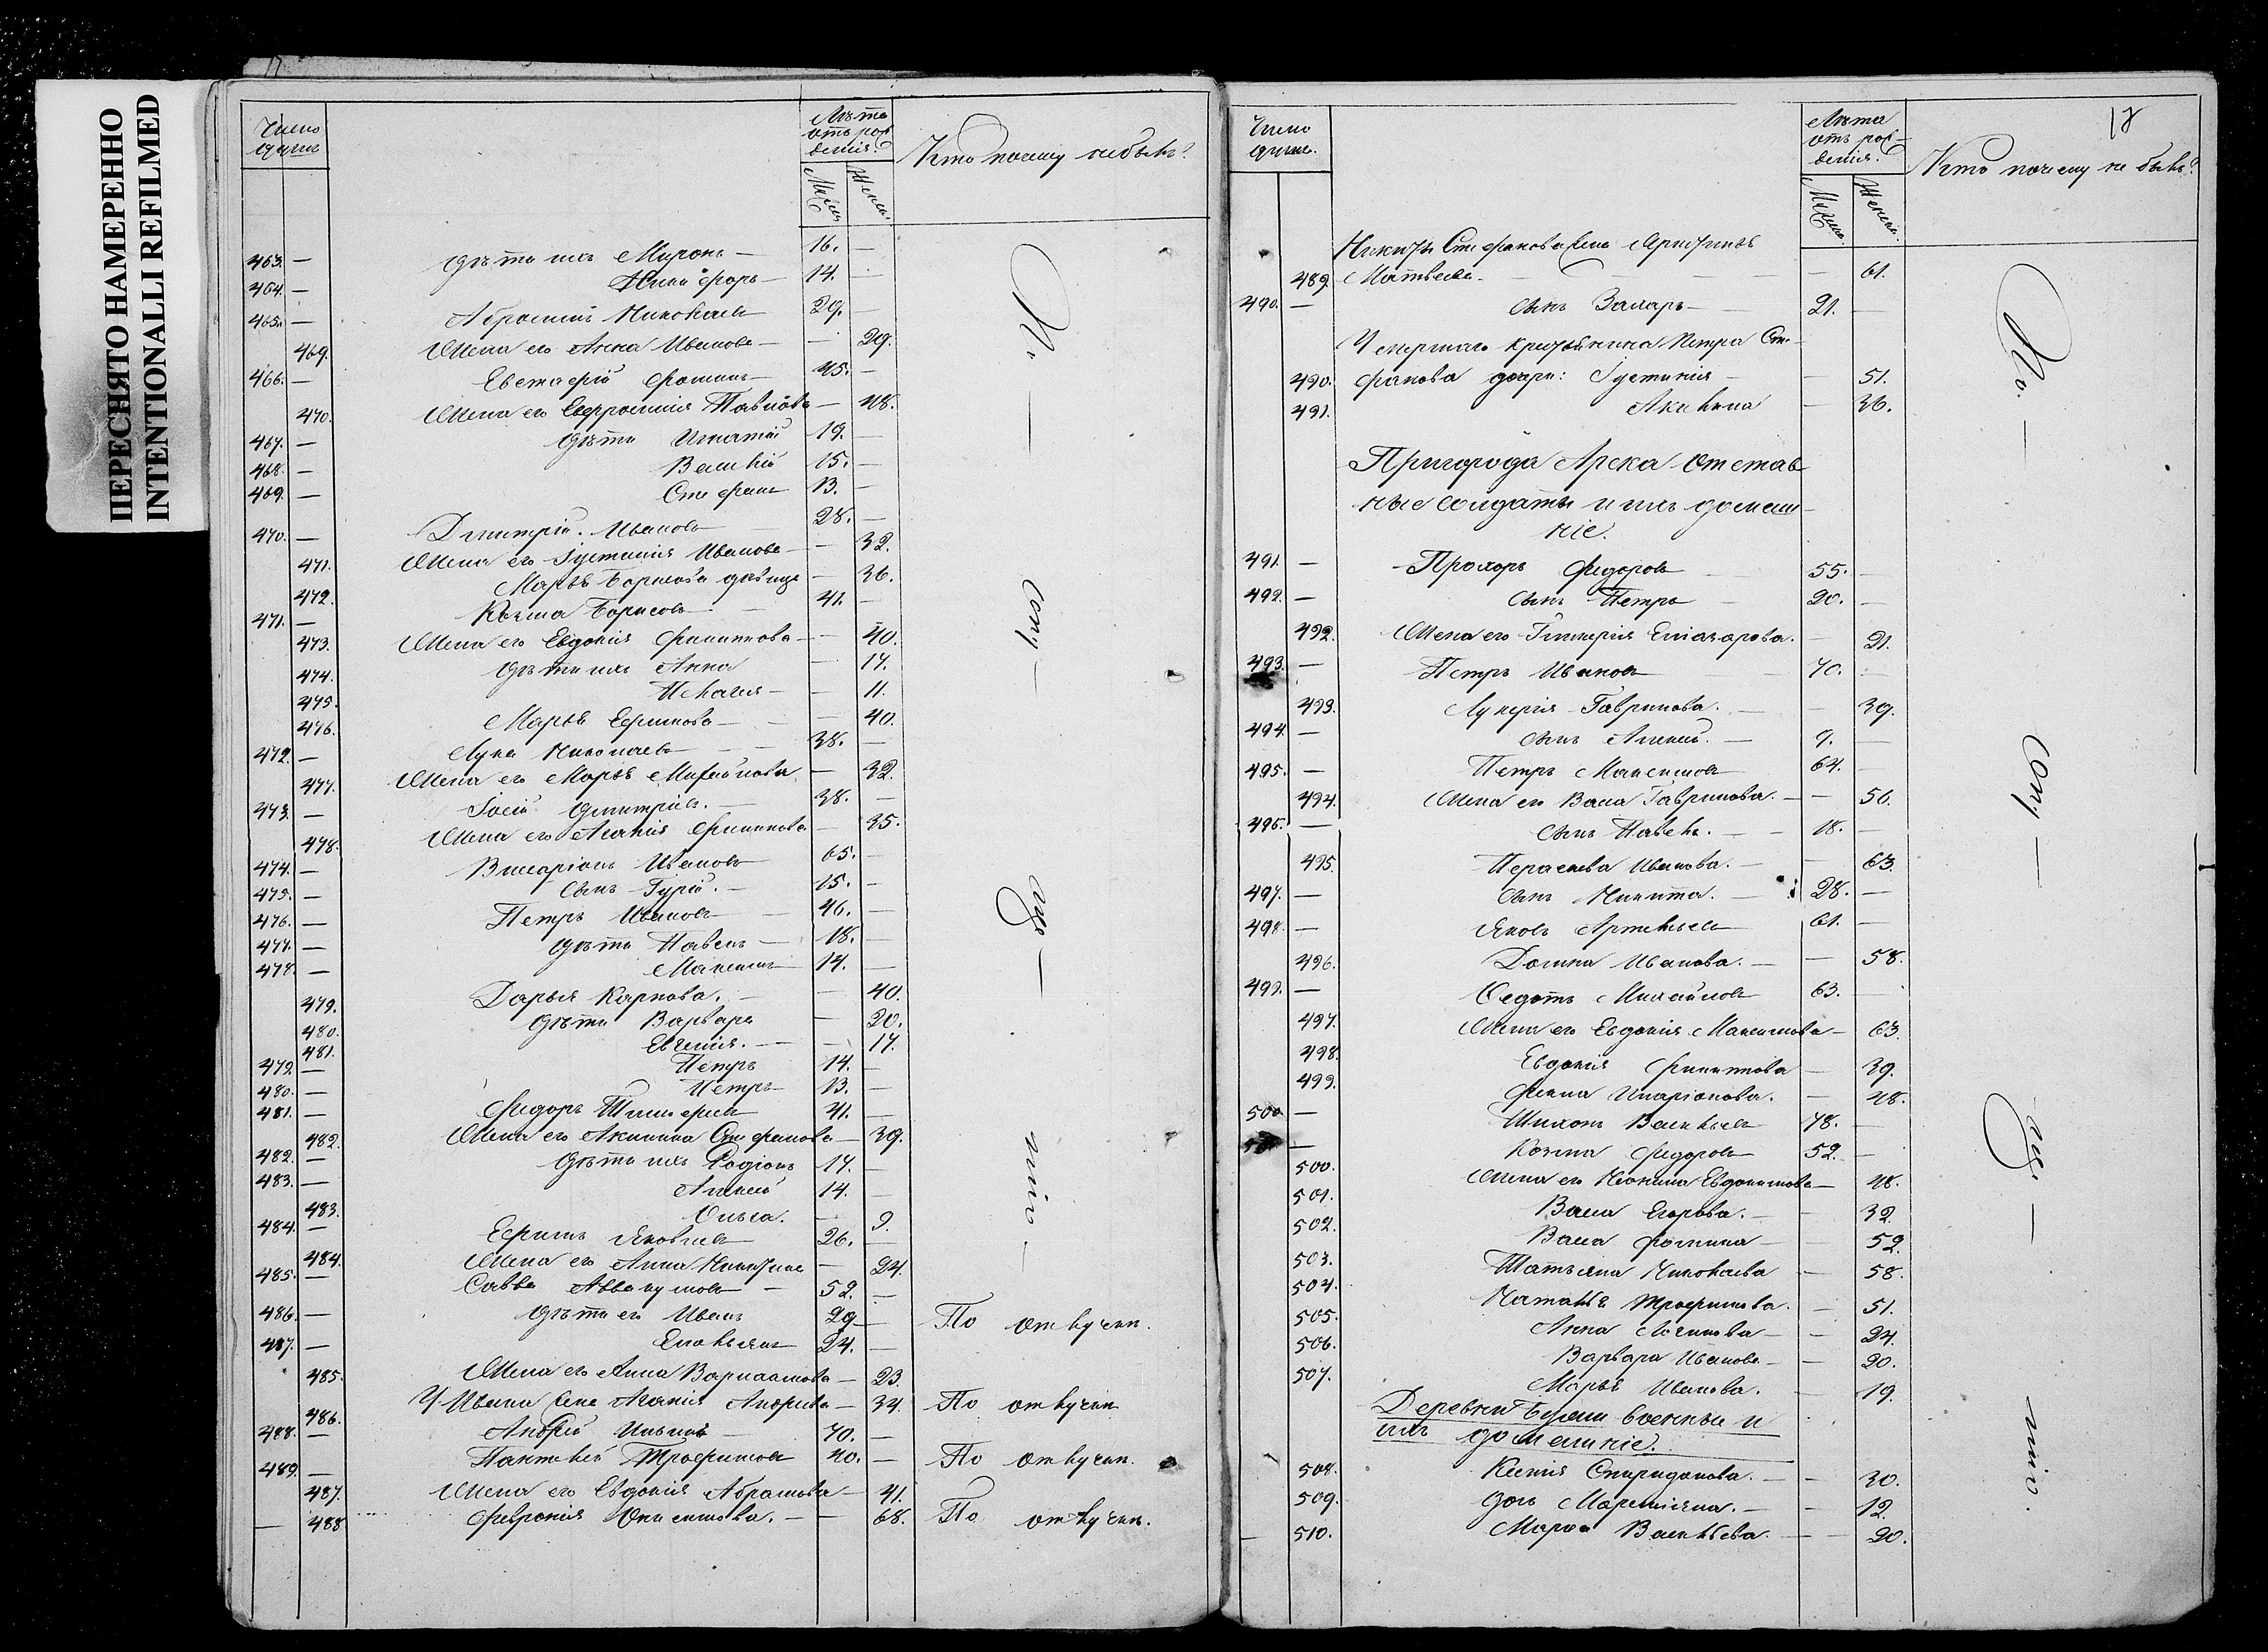 ПЕРЕСНЯТО НАМЕРЕННО
INTENTIONALLI REFILMED
Число
душъ
Лѣта
отъ рож
денія.
Мужск.
Женск.
Кто почему не былъ?
463. — дѣти ихъ Миронъ — 16. —
464. — Никифоръ — 14. —
465. — Абросимъ Николаевъ 29. —
469. Жена его Анна Иванова — — 29.
466. — Евстафій Фоминъ — 45. —
470. Жена его Евфросинія Павлова — 48.
467. — дѣти Игнатій 19. —
468. — Василій 15. —
469. — Стефанъ 13. —
470. — Дмитрій Ивановъ 28. —
471. Жена его Іустинія Иванова — — 32.
472. Марья Борисова дѣвица — 36.
471. — Козма Борисовъ 41. —
473. Жена его Евдокія Филиппова — — 40.
474. дѣти ихъ Анна — 17.
475. Пелагея — — 11.
476. Марья Ефимова — — 40.
472. — Лука Николаевъ — 38. —
477. Жена его Марья Михайлова — 32.
473. — Іосій Дмитріевъ. — 38. —
478. Жена его Агапія Филиппова — 35.
474. — Висаріонъ Ивановъ 65. —
475. — Сынъ Гурій. — 15. —
476. — Петръ Ивановъ — 46. —
477. — дѣти Павелъ — 18. —
478. — Максимъ 14. —
479. Дарья Карпова. — — 40.
480. дѣти Варвара — 20.
481. Евгенія. — — 17.
479. — Петръ 14. —
480. — Петръ 13. —
481. — Федоръ Тимофеевъ 41. —
482. Жена его Акилина Стефанова — 39.
482. — Дѣти ихъ Родіонъ 17. —
483. — Алексѣй 14. —
483. Ольга. — 9.
484. — Ефимъ Яковлевъ 26. —
484. Жена его Анна Никитина — 24.
485. — Савва Аввакумовъ — 52. —
486. — дѣти его Иванъ 29 — По отлучкѣ.
487. — Емельянъ 24. —
485. Жена его Анна Варлаамова — 23.
486. У Ивана жена Агапія Андреева — 34. По отлучкѣ
488. — Андрей Ивановъ — 70. —
489. — Пантелей Трофимовъ 40. — По отлучкѣ.
487. Жена его Евдокія Абрамова — 41.
488 Феврония Онисимова. — — 68. По отлучкѣ.
По — сему — су — нию —
17
Число
душъ.
Лѣта
отъ рож-
денія.
Мужск.
Женск.
Кто почему не былъ?
Никиты Стефанова жена
489. Матвеева — — 61.
490. — сынъ Захаръ — 21. —
Умершаго крестьянина Петра Сте-
490. фанова дочери: Іустинія — — 51.
491. Акилина — 36.
Пригорода Арска отстав
ные солдаты и ихъ домаш-
ніе.
491. — Прохоръ Федоровъ 55. —
492. — сынъ Петръ 20. —
492. Жена его Гликерія — 21.
493. — Петръ Ивановъ 70. —
493. Лукерія Гаврилова. — — 39.
494. — сынъ Алексѣй. — 9. —
495. — Петръ Максимовъ 64. —
494. Жена его Васса Гаврилова. — — 56.
496. — сынъ Павелъ. — 18. —
495. Параскева Иванова. — — 63.
497. — сынъ Никита. — 28. —
498. — Яковъ Артемьевъ 61. —
496. Домна Иванова. — — 58.
499. — Федотъ Михайловъ 63. —
497. Жена его Евдокія Максимова — 63.
498. Евдокія Филиппова — 39.
499. Фекла Иларіонова. — 48.
500 — Тихонъ Васильевъ 78. —
— Козма Федоровъ 52. —
500. Жена его Неонила Евдокимова — 48.
501. Васса Егорова. — — 32.
502. Васса Фомина — 52.
503. Татьяна Николаева — 58.
504. Наталья Трофимова. — 51.
505. Анна Логинова — — 24.
506. Варвара Иванова — — 20.
507. Марья Иванова. — 19.
Деревни военныи и
ихъ домашніе.
508. Ксенія Спиридонова. — — 30.
509. дочь Мареміяна. — — 12.
510. Марѳа Васильева. — — 20.
По — сему — су — нию.